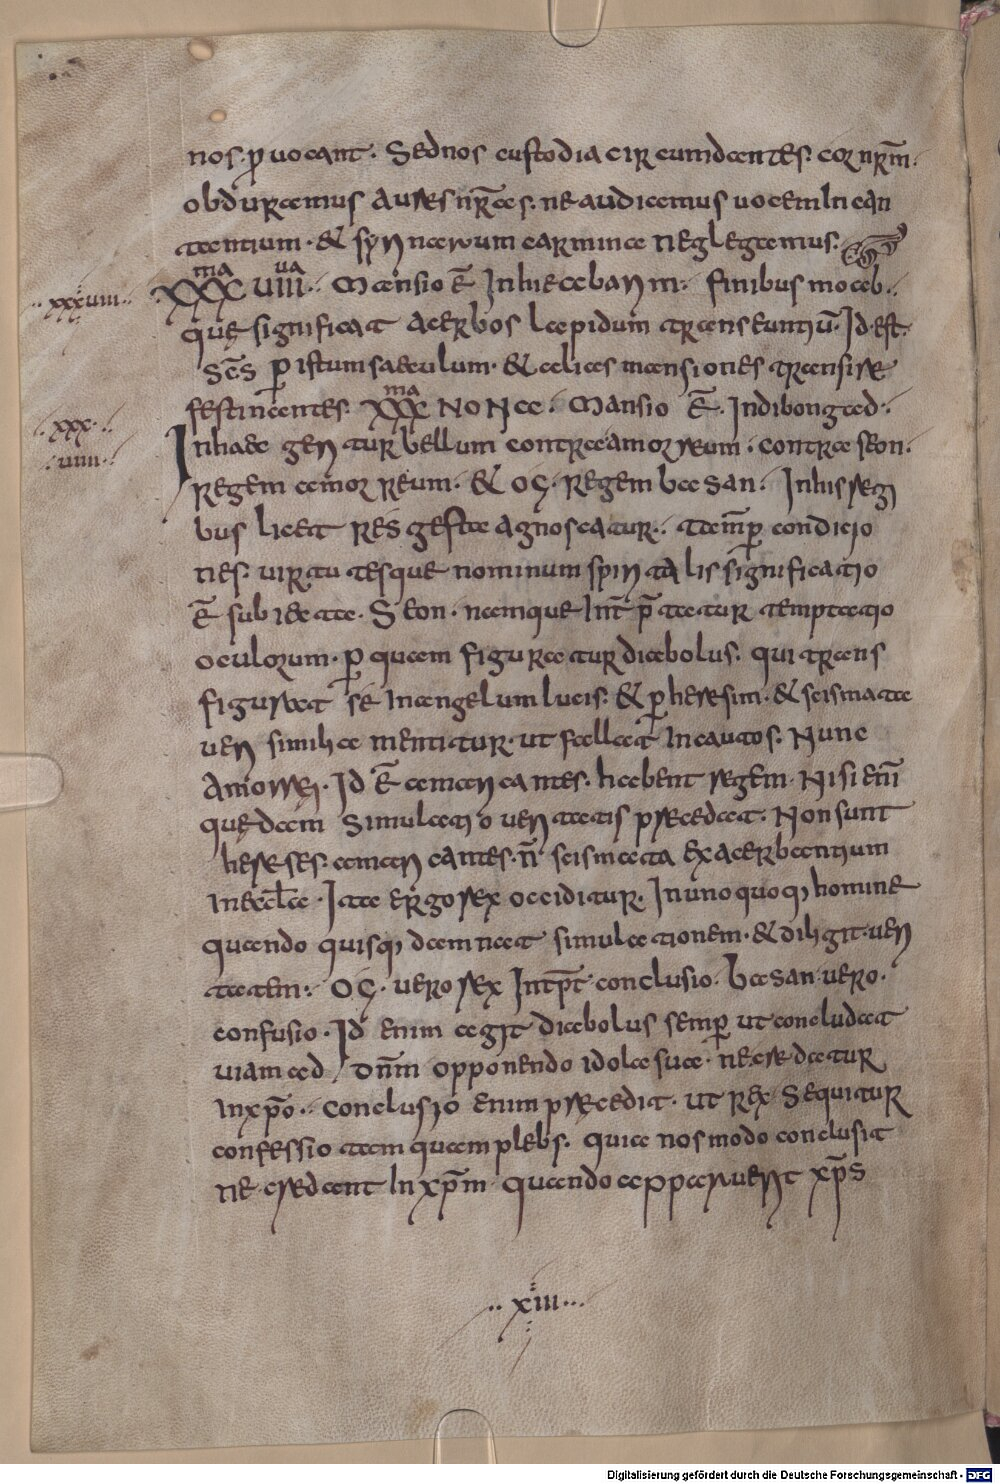 nos · p̱uocant · Sed nos custodia circumdantes · cor nr̄m ·
obduramus aures nr̄as · ne audiamus uocem Incan
tantium · & syrinarum carmina neglegamus ·
XXXᵐᵃ UIIIᵘᵃ · Mansio ē In hieabarim · finibus moab ·
··xxxuiii··
quę significat aceruos lapidum transeuntiū · Id est ·
sc̄s p̱ istum saeculum · & ad alias mansiones transire
festinantes · XXXᵐᵃ NONa · Mansio ē · In dibongad ·
··xxx··
·uiiii·
In hac geritur bellum contra amorreum · contra seon ·
regem amorreum · & oc · regem basan · In his regi
bus licet res gestae agnoscatur · tam̄ p̱ condicio
nes · uirtutesque nominum spiritalis significatio
ē subiecta · Seon · namque Int̄p̄tatur temptatio
oculorum · p̱ quam figuratur diabolus · qui trans
figurat se In angelum lucis · & p̱ heresim · & scismata
ueri similia mentitur · ut fallat Incautos · Nunc
Amorrei · Id ē amaricantes · habent regem · Nisi enī
quędam simulatio ueritatis precedat · Non sunt
hereses · amaricantes · n̄ scismata exacerbantium
In eccl̄a · Ita ergo rex occiditur · In unoquoq; homine
quando quisq; damnat simulationem · & diligit · ueri
tatem · Oc · uero rex Int̄p̄t conclusio · basan uero ·
confusio · Id enim agit diabolus semp̱ ut concludat
uiam ad / dn̄m opponendo idola sua · ne credatur
In xp̄o · Conclusio enim precedit · ut rex · Sequitur
confessio tamquam plebs · quia nos modo conclusit
ne credant In xp̄m quando apparuerit xp̄s
·· xiii ···
Digitalisierung gefördert durch die Deutsche Forschungsgemeinschaft - DFG